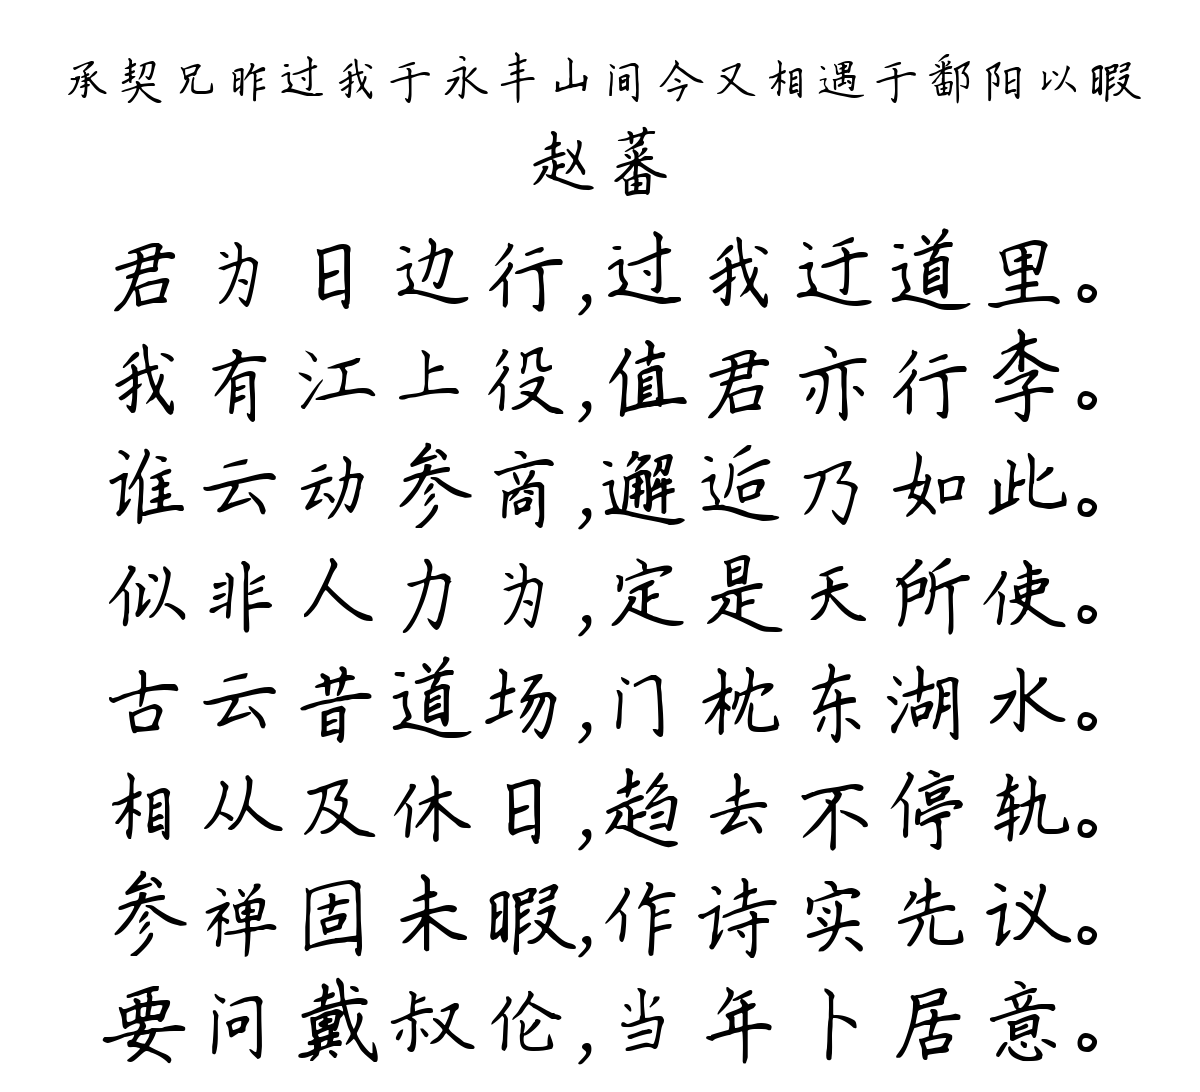 承契兄昨过我于永丰山间今又相遇于鄱阳以暇
赵蕃
君为日边行,过我迂道里。
我有江上役,值君亦行李。
谁云动参商,邂逅乃如此。
似非人力为,定是天所使。
古云昔道场,门枕东湖水。
相从及休日,趋去不停轨。
参禅固未暇,作诗实先议。
要问戴叔伦,当年卜居意。